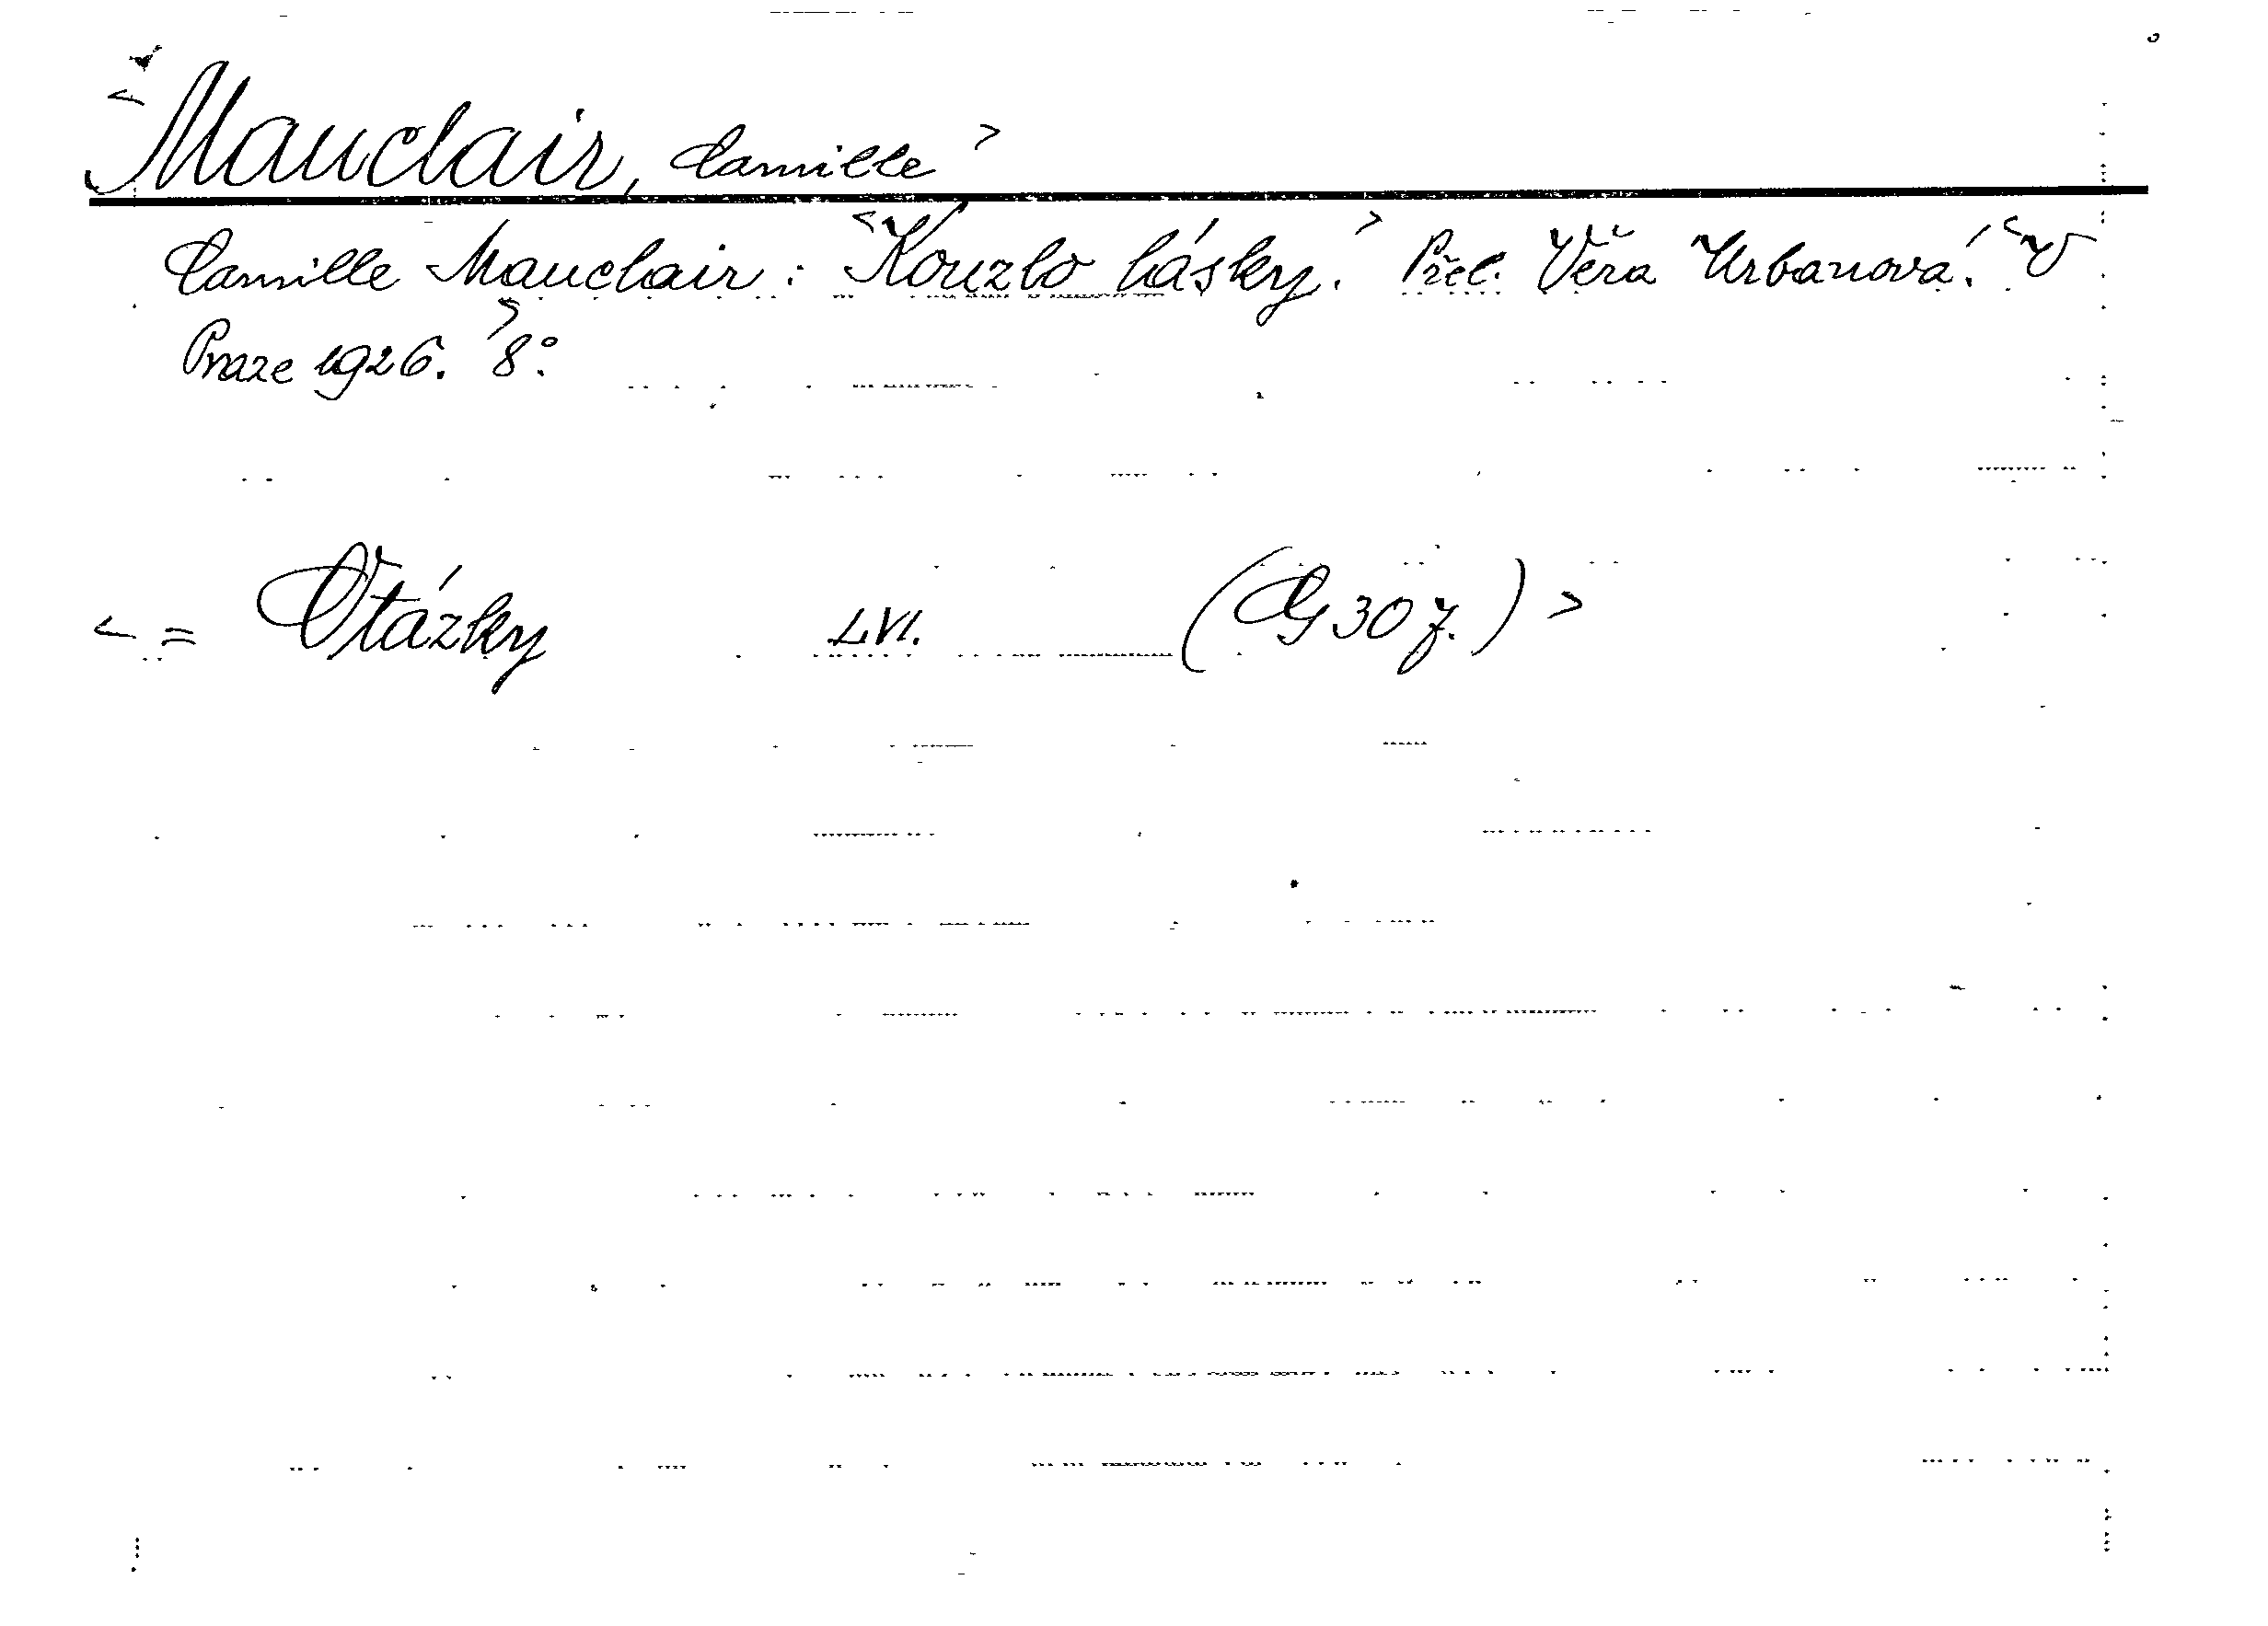 <Mauclair, Camille>
Camille Mauclair: <Kouzlo lásky.> Přel. Věra Urbanová. <V
Praze 1926.> 8°.
<= Otázky LVI. (G 307.)>